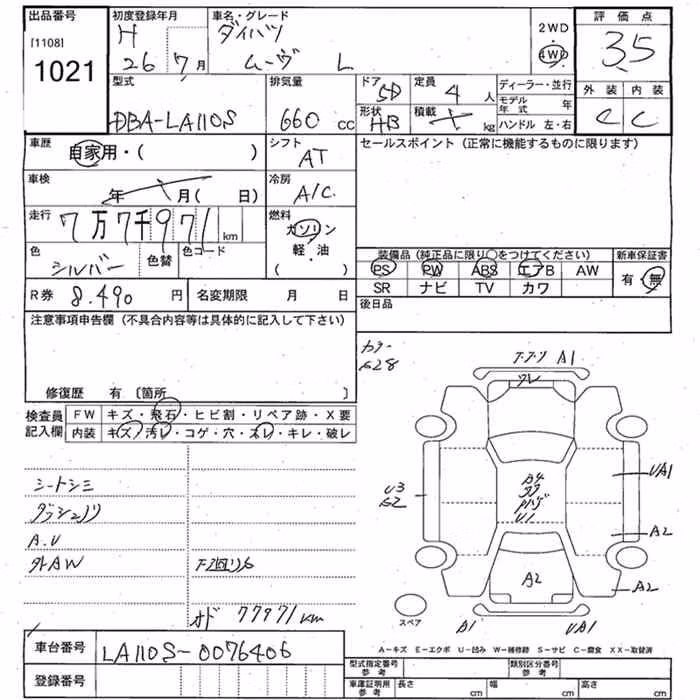 出品番号 初度登録年月 車名・グレード 2WD 評価点
[1108] H ダイハツ 4WD 3.5
1021 26 7月 ムーヴ L
外装 内装
C C
型式 排気量 ドア 5D 定員 4人 ディーラー・並行
DBA-LA110S 660cc 形状 HB 積載 kg モデル年式 年
ハンドル 左・右
車歴 自家用・( ) シフト AT セールスポイント（正常に機能するものに限ります）
車検 年 月( 日) 冷房 A/C
走行 7万7千971km 燃料 ガソリン
軽・油
( )
色 シルバー 色替 色コード
装備品（純正品に限り○をつけてください） 新車保証書
PS PW ABS エアB AW 有・無
SR ナビ TV カワ
R券 8.490円 名変期限 月 日 後日品
注意事項申告欄（不具合内容等は具体的に記入して下さい）
修復歴 有 〔箇所 〕
検査員記入欄 FW キズ・飛石・ヒビ割・リペア跡・X要
内装 キズ・汚レ・コゲ・穴・スレ・キレ・破レ
カラー
S28
A1
UA1
A2
A2
A2
A1 UA1
U3
U1
シートシミ
ダッシュノリ
A.U
外AW
オド 77971km
スペア
A-キズ E-エクボ U-凹み W-補修跡 S-サビ C-腐食 XX-取替済
車台番号 LA110S-0076406
登録番号
型式指定番号 参考 類別区分番号 参考
車庫証明用 参考 長さ cm 幅 cm 高さ cm